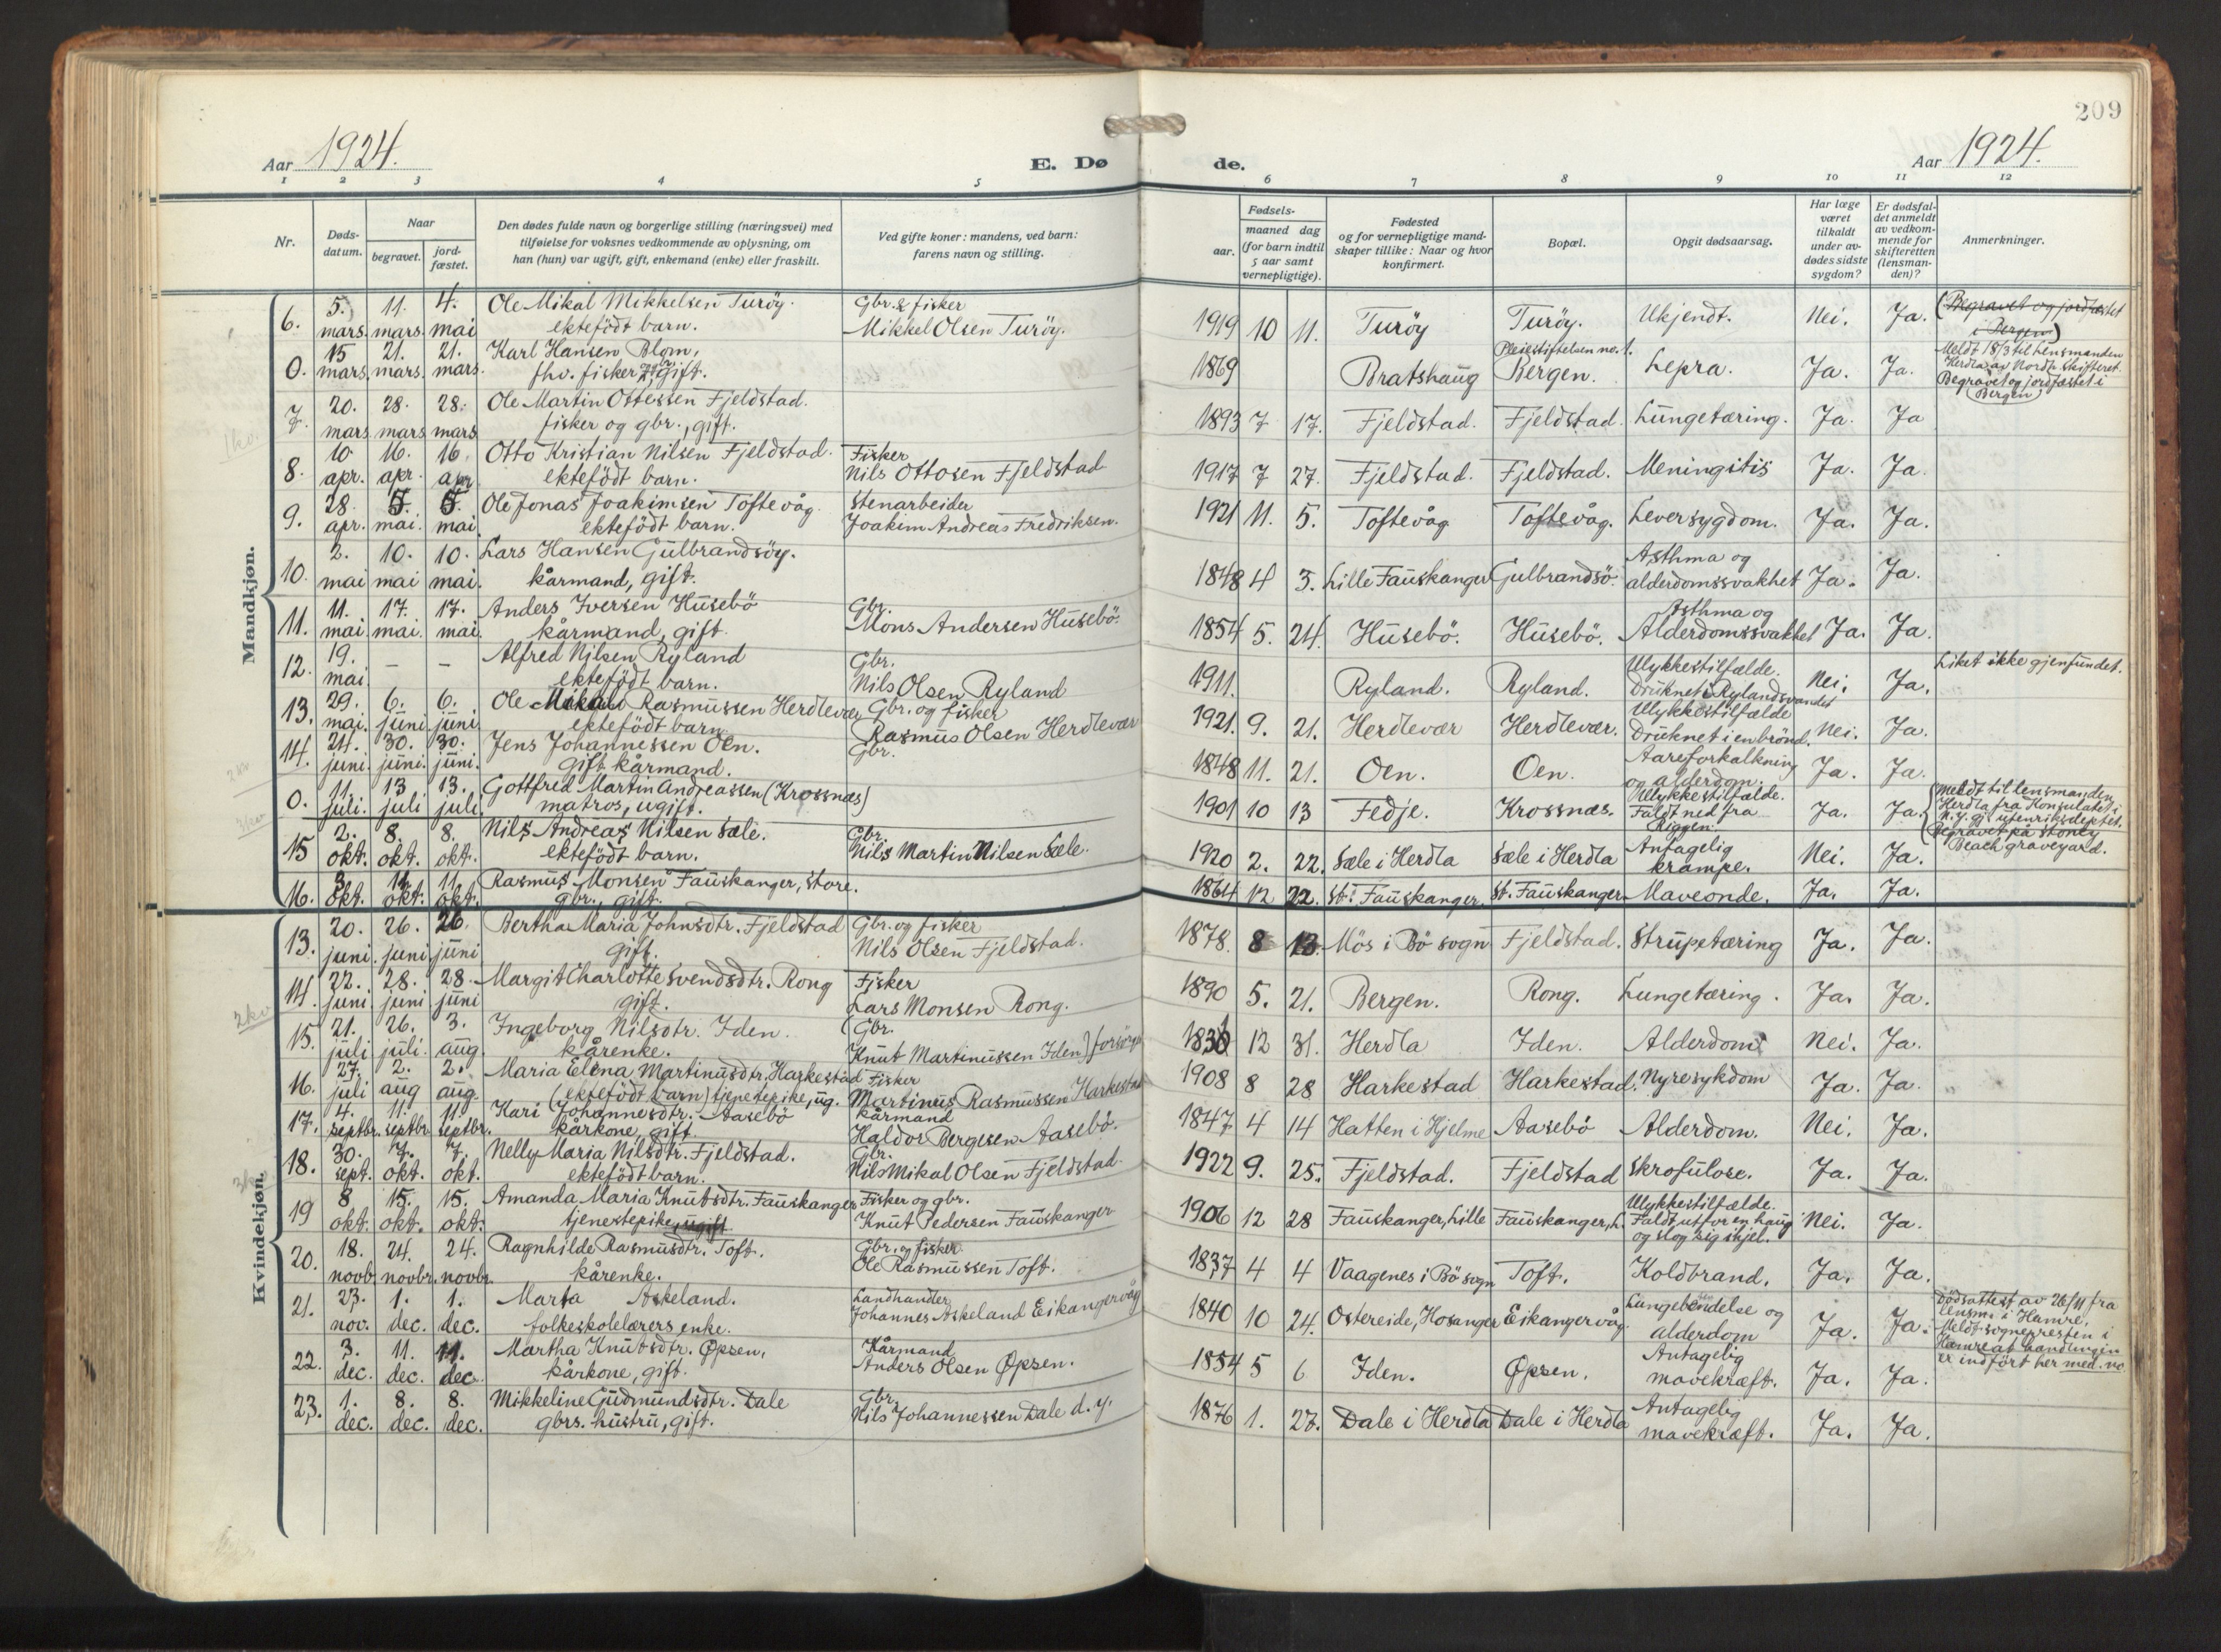 209
Aar 1924.
E. Dø
de.
Aar 1924.
1 2 3 4 5 6 7 8 9 10 11 12
Nr.
Døds-
datum.
Naar
begravet.
jord-
fæstet.
Den dødes fulde navn og borgerlige stilling (næringsvei) med
tilføielse for voksnes vedkommende av oplysning, om
han (hun) var ugift, gift, enkemand (enke) eller fraskilt.
Ved gifte koner: mandens, ved barn:
farens navn og stilling.
Fødsels-
aar.
maaned dag
(for barn indtil
5 aar samt
vernepligtige).
Fødested
og for vernepligtige mand-
skaper tillike: Naar og hvor
konfirmert.
Bopæl.
Opgit dødsaarsag.
Har læge
været
tilkaldt
under av-
dødes sidste
sygdom?
Er dødsfal-
det anmeldt
av vedkom-
mende for
skifteretten
(lensman-
den)?
Anmerkninger.
Mandkjøn.
6. 5. mars. 11. mars. 4. mai Ole Mikal Mikkelsen Turöy. ektefödt barn. Gbr. & fisker Mikkel Olsen Turöy. 1919 10 11. Turöy Turöy. Ukjendt. Nei. Ja. (Begravet og jordfæstet i Bergen)
0. 15 mars. 21. mars. 21. mars. Karl Hansen Blom, fhv. fisker gift. 1869 Bratshaug Pleiestiftelsen no. 1. Bergen. Lepra. Ja. Ja. Meldt 18/3 til Lensmanden Herdla av Nordh. Skifteret. Begravet og jordfæstet i Bergen)
7. 20. mars 28. mars 28. mars Ole Martin Ottessen Fjeldstad. fisker og gbr., gift. 1893 7 17. Fjeldstad. Fjeldstad. Lungetæring. Ja. Ja
8. 10 apr. 16. apr. 16. apr Otto Kristian Nilsen Fjeldstad. ektefödt barn. Fisker Nils Ottosen Fjeldstad 1917 7 27. Fjeldstad. Fjeldstad. Meningitis Ja. Ja.
9. 28. apr. 5. mai. 5. mai Ole Jonas Joakimsen Toftevåg. ektefödt barn. Stenarbeider Joakim Andreas Fredriksen. 1921 11. 5. Toftevåg Toftevåg. Leversygdom. Ja. Ja.
10. 2. mai 10. mai 10. mai. Lars Hansen Gulbrandsöy. kårmand, gift. 1848 4 3. Lille Fauskanger Gulbrandsö. Asthma og alderdomssvakhet Ja. Ja.
11. 11. mai 17. mai. 17. mai. Anders Iversen Husebö kårmand, gift. Gbr. Mons Andersen Husebö. 1854 5. 24. Husebö. Husebö. Asthma og Alderdomssvakhet Ja. Ja.
12. 19. mai. – – Alfred Nilsen Ryland ektefödt barn. Gbr. Nils Olsen Ryland 1911. Ryland. Ryland. Ulykkestilfælde. Druknet i Rylandsvandet Nei. Ja. Liket ikke gjenfundet.
13. 29. mai. 6. juni 6. juni. Ole Mikal Rasmussen Herdlevær ektefödt barn. Gbr. og fisker Rasmus Olsen Herdlevær 1921. 9. 21. Herdlevær Herdlevær. Ulykkestilfælde Druknet i en brönd. Nei. Ja.
14. 24. juni. 30. juni. 30. juni. Jens Johannessen Oen. gift kårmand. Gbr. 1848 11. 21. Oen. Oen. Aareforkalkning og alderdom. Ja. Ja.
0. 11. juli. 13 juli 13. juli Gottfred Martin Andreassen (Krossnæs) matros, ugift. 1901 10 13 Fedje. Krossnæs. Ulykkestilfælde. Faldt ned fra Riggen. Ja. Ja. (Meldt til lensmanden Herdla fra Konsulatet i N.Y. gj. utenriksdeptet. Begravet på Stoney Beach graveyard.
15 2. okt. 8. okt. 8. okt. Nils Andreas Nilsen Sæle. ektefödt barn. Gbr. Nils Martin Nilsen Sæle. 1920 2. 22. Sæle i Herdla Sæle i Herdla Antagelig krampe. Nei. Ja.
16. 3. okt. 11. okt. 11. okt. Rasmus Monsen Fauskanger, Store. gbr., gift. 1864 12 22. St. Fauskanger. St. Fauskanger. Maveonde. Ja. Ja.
Kvindekjøn.
13. 20. juni. 26. juni 26. juni Bertha Maria Johnsdtr. Fjeldstad gift. Gbr. og fisker Nils Olsen Fjeldstad. 1878. 8 13. Mös i Bö sogn Fjeldstad. Strupetæring Ja. Ja.
14. 22. juni. 28. juni 28. juni Margit Charlotte Svendsdtr. Rong gift. Fisker Lars Monsen Rong. 1890 5. 21. Bergen. Rong. Lungetæring. Ja. Ja.
15. 21. juli 26. juli. 3. aug. Ingeborg Nilsdtr. Iden. kårenke. (Gbr. Knut Martinussen Iden) 12 31. Herdla Iden. Alderdom Nei. Ja.
16. 27. juli 2. aug 2. aug. Maria Elena Martinusdtr. Harkestad (ektefödt barn) tjenestepike, ug. Fisker Martinus Rasmussen Harkestad 1908 8 28 Harkestad Harkestad. Nyresykdom Ja. Ja.
17. 4. septbr. 11. septbr 11. septbr. Kari Johannesdtr. Aasebö kårkone, gift. Kårmand Haldor Bergesen Aasebö. 1847 4 14 Hatten i Hjelme Aasebö Alderdom. Nei. Ja.
18. 30. sept. 7. okt. 7. okt. Nelly Maria Nilsdtr. Fjeldstad. ektefödt barn. Gbr. Nils Mikal Olsen Fjeldstad. 1922 9. 25. Fjeldstad. Fjeldstad Skrofulose. Ja. Ja.
19 8 okt. 15. okt. 15. okt. Amanda Maria Knutsdtr. Fauskanger tjenestepike, ugift Fisker og gbr. Knut Pedersen Fauskanger 1906 12 28 Fauskanger, Lille Fauskanger, L. Ulykkestilfælde. Faldt utfor en haug og slog sig ihjel. Nei. Ja.
20. 18. novb. 24. novbr. 24. novbr. Ragnhilde Rasmusdtr. Toft. kårenke. Gbr. og fisker Ole Rasmussen Toft. 1837 4 4 Vaagenes i Bö sogn Toft. Koldbrand. Ja. Ja.
21. 23. nov. 1. dec. 1. dec. Marta Askeland. folkeskolelærers enke. Landhandler Johannes Askeland Eikangervåg 1840 10 24. Ostereide, Hosanger Eikangervåg. Lungebetændelse og alderdom Ja. Ja. Dödsattest av 26/11 fra lensm. i Hamre. Meldt sognepresten i Hamre at handlingen er indfört her med. no
22. 3. dec. 11. dec. 11. dec Martha Knutsdtr. Opsen, kårkone, gift. Kårmand Anders Olsen Opsen. 1854 5 6 Iden. Opsen. Antagelig mavekræft. Ja. Ja.
23. 1. dec. 8. dec. 8. dec. Mikkeline Gudmundsdtr. Dale gbrs. hustru, gift. Gbr. Nils Johannessen Dale d.y. 1876 1. 27. Dale i Herdla Dale i Herdla Antagelig mavekræft. Ja. Ja.